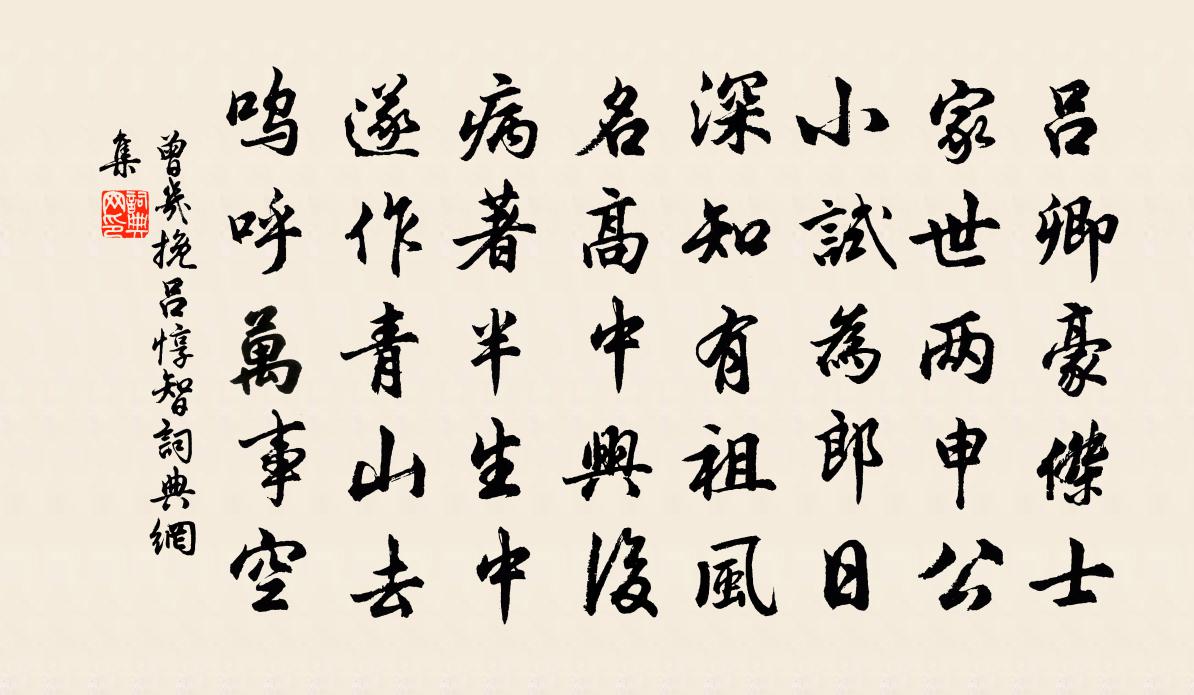 吕卿豪傑士
家世两申公
小試為郎日
深知有祖風
名高中興後
病著半生中
遂作青山去
鸣呼萬事空
曾幾挽吕惇智詞典網
集
詞典
网印